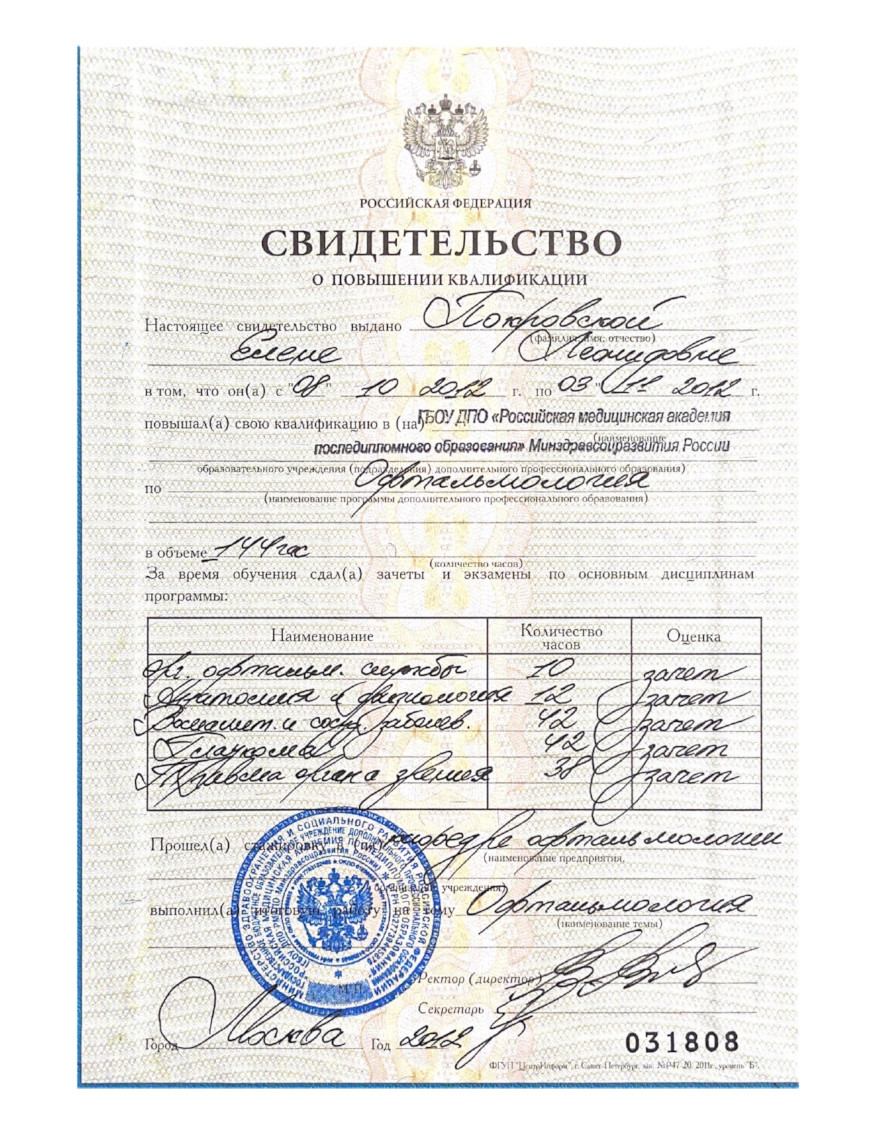 РОССИЙСКАЯ ФЕДЕРАЦИЯ
СВИДЕТЕЛЬСТВО
О ПОВЫШЕНИИ КВАЛИФИКАЦИИ
Настоящее свидетельство выдано Покровской
(фамилия, имя, отчество)
Елене Леонидовне
в том, что он(а) с "08" 10 2012 г. по 03 " 11 2012 г.
повышал(а) свою квалификацию в (на) ГБОУ ДПО «Российская медицинская академия
(наименование
последипломного образования» Минздравсоцразвития России
образовательного учреждения (подразделения) дополнительного профессионального образования)
по Офтальмология
(наименование программы дополнительного профессионального образования)
в объеме 144 час
(количество часов)
За время обучения сдал(а) зачеты и экзамены по основным дисциплинам
программы:
Наименование Количество часов Оценка
Орг. офтальм. службы 10 зачет
Анатомия и физиология 12 зачет
Воспалит. и сосуд. заболев. 42 зачет
Глаукома 42 зачет
Травма органа зрения 38 зачет
Прошел(а) стажировку в (на) кафедре офтальмологии
(наименование предприятия,
организации, учреждения)
выполнил(а) итоговую работу на тему Офтальмология
(наименование темы)
Ректор (директор)
Секретарь
М.П.
Город Москва Год 2012
031808
ФГУП "ЦентрИнформ", г. Санкт-Петербург, зак. №Р47-20, 2011г., уровень "Б".